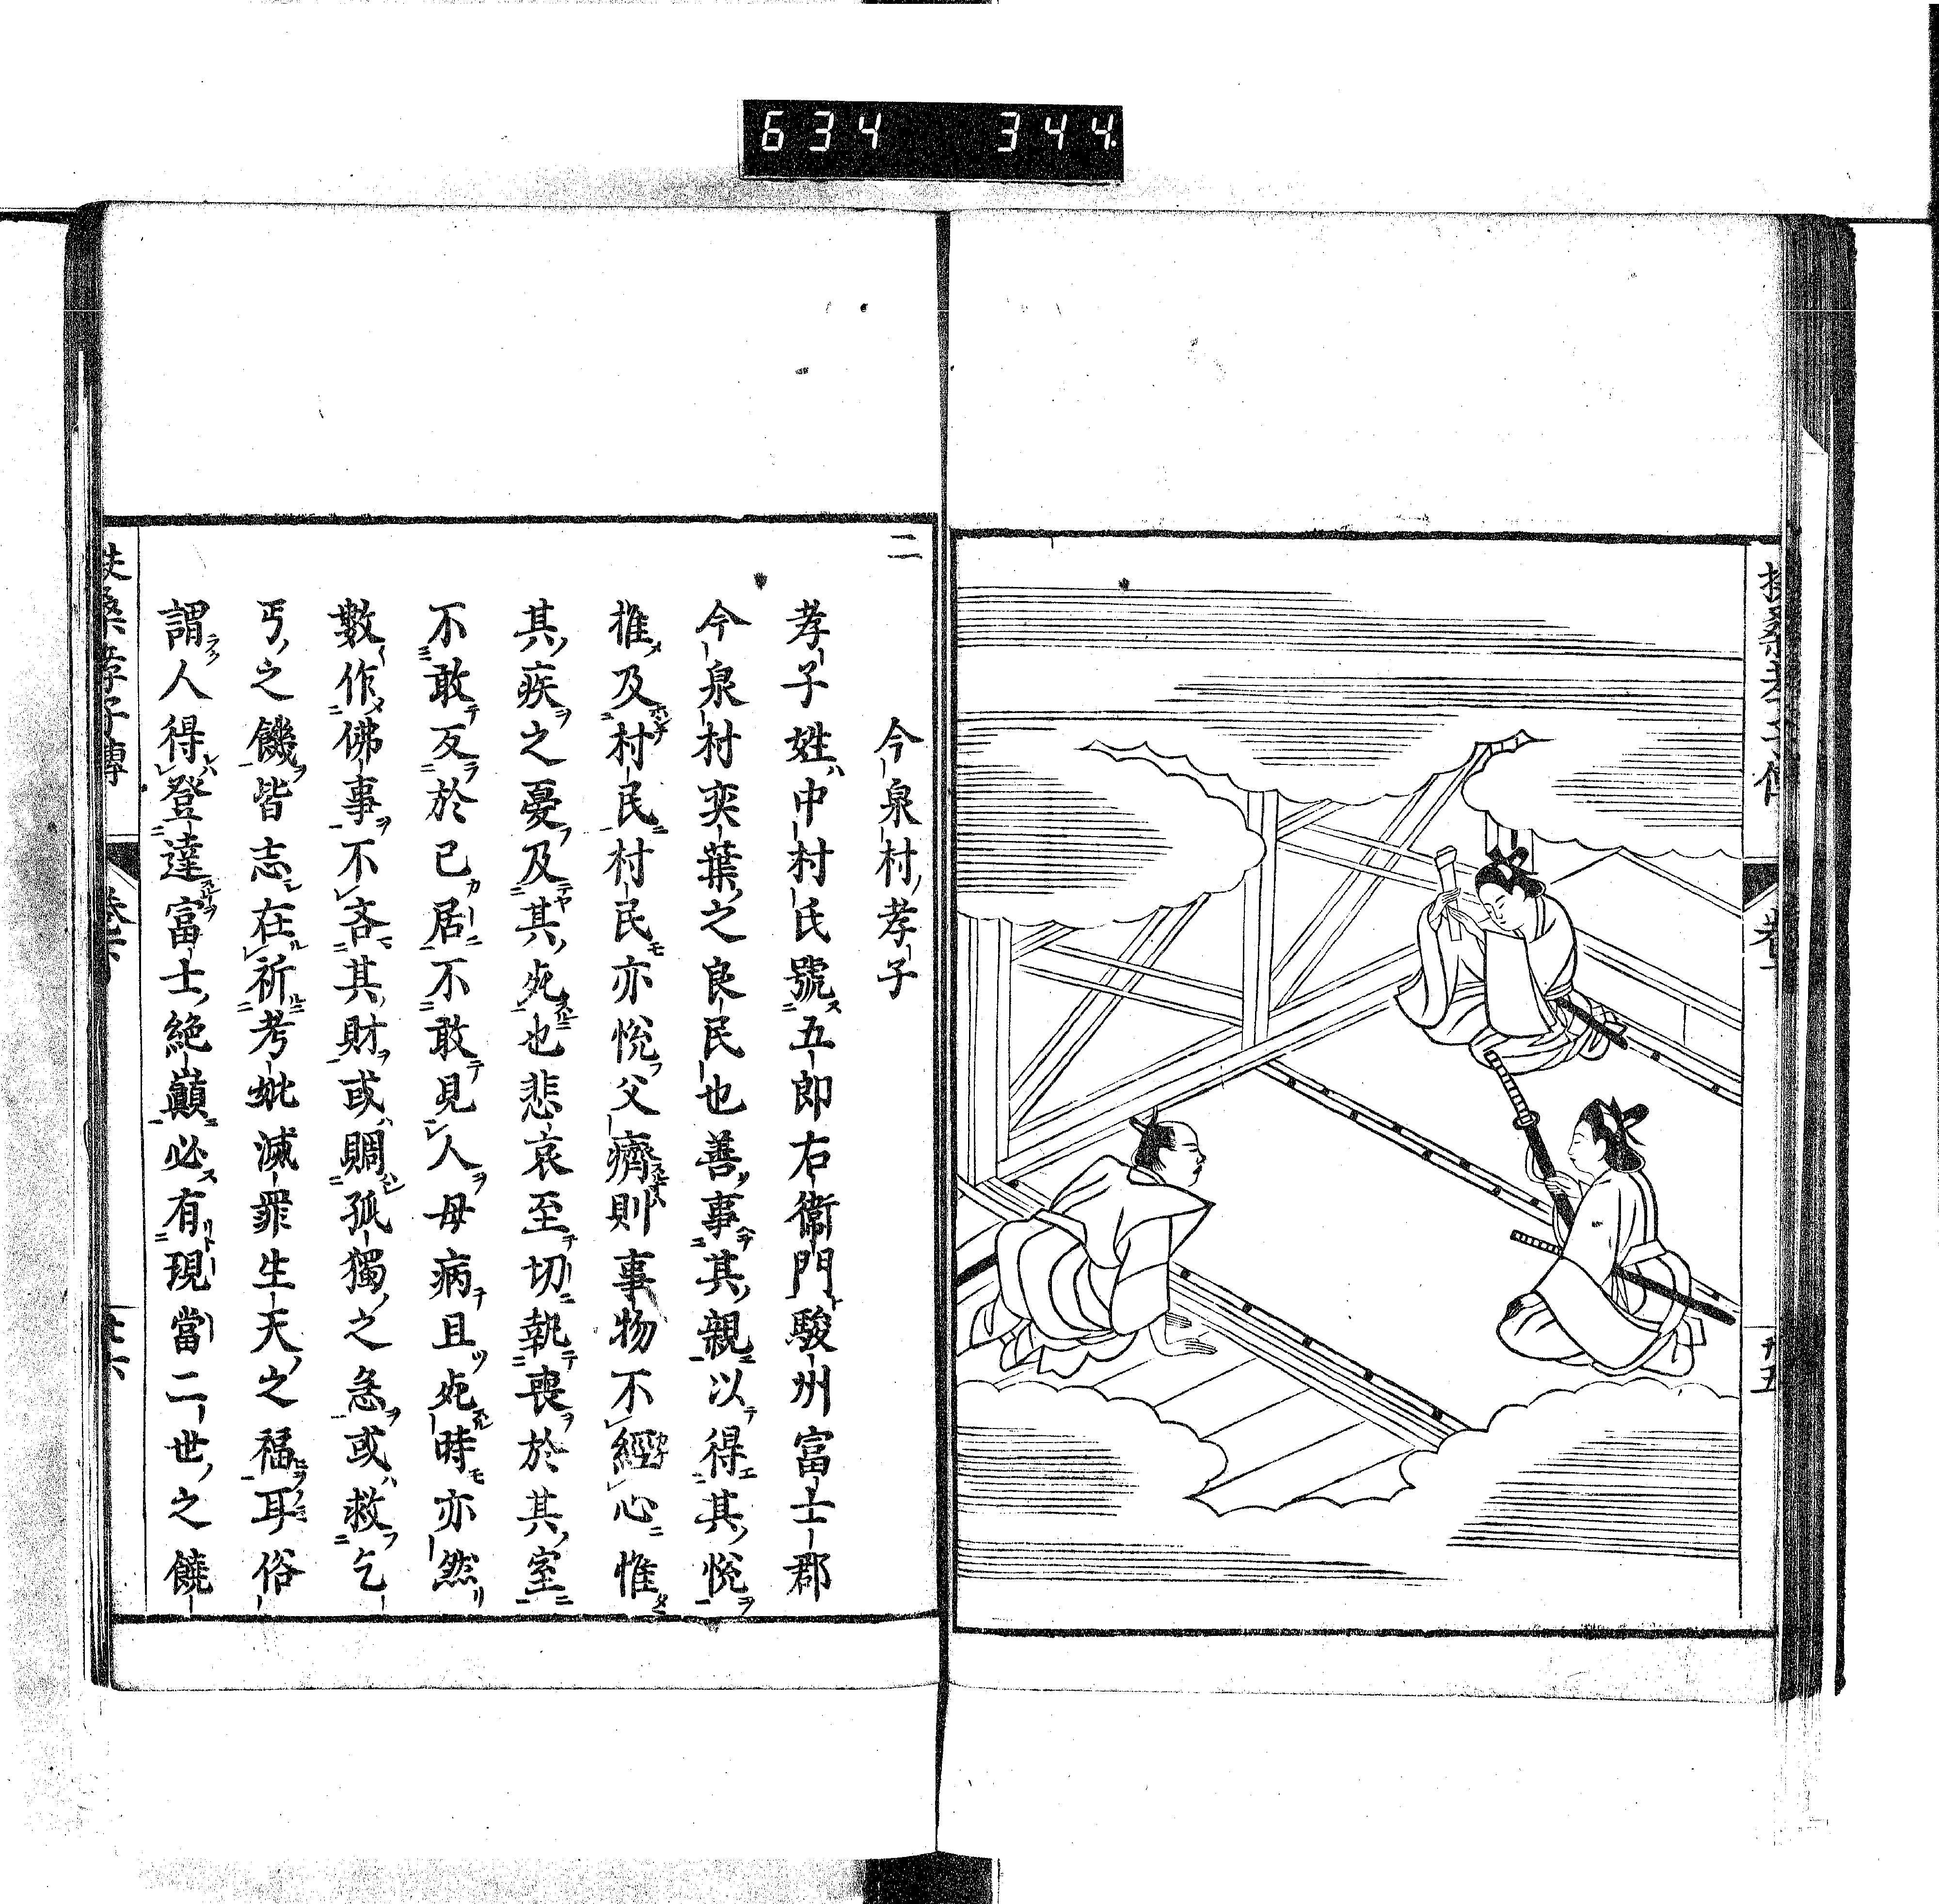 634 344
二
今泉村孝子
孝子姓中村氏號五郎右衛門駿州富士郡
今泉村奕葉之良民也善事其親以得其悅
推及村民村民亦悅父癠則事物不經心惟
其疾之憂及其死也悲哀至切執喪於其室
不敢反於己居不敢見人母病且死時亦然
數作佛事不吝其財或賙孤獨之急或救乞
丐之饑皆志在祈考妣滅罪生天之福耳俗
謂人得登達富士絶巔必有現當二世之饒
扶桑孝子傳